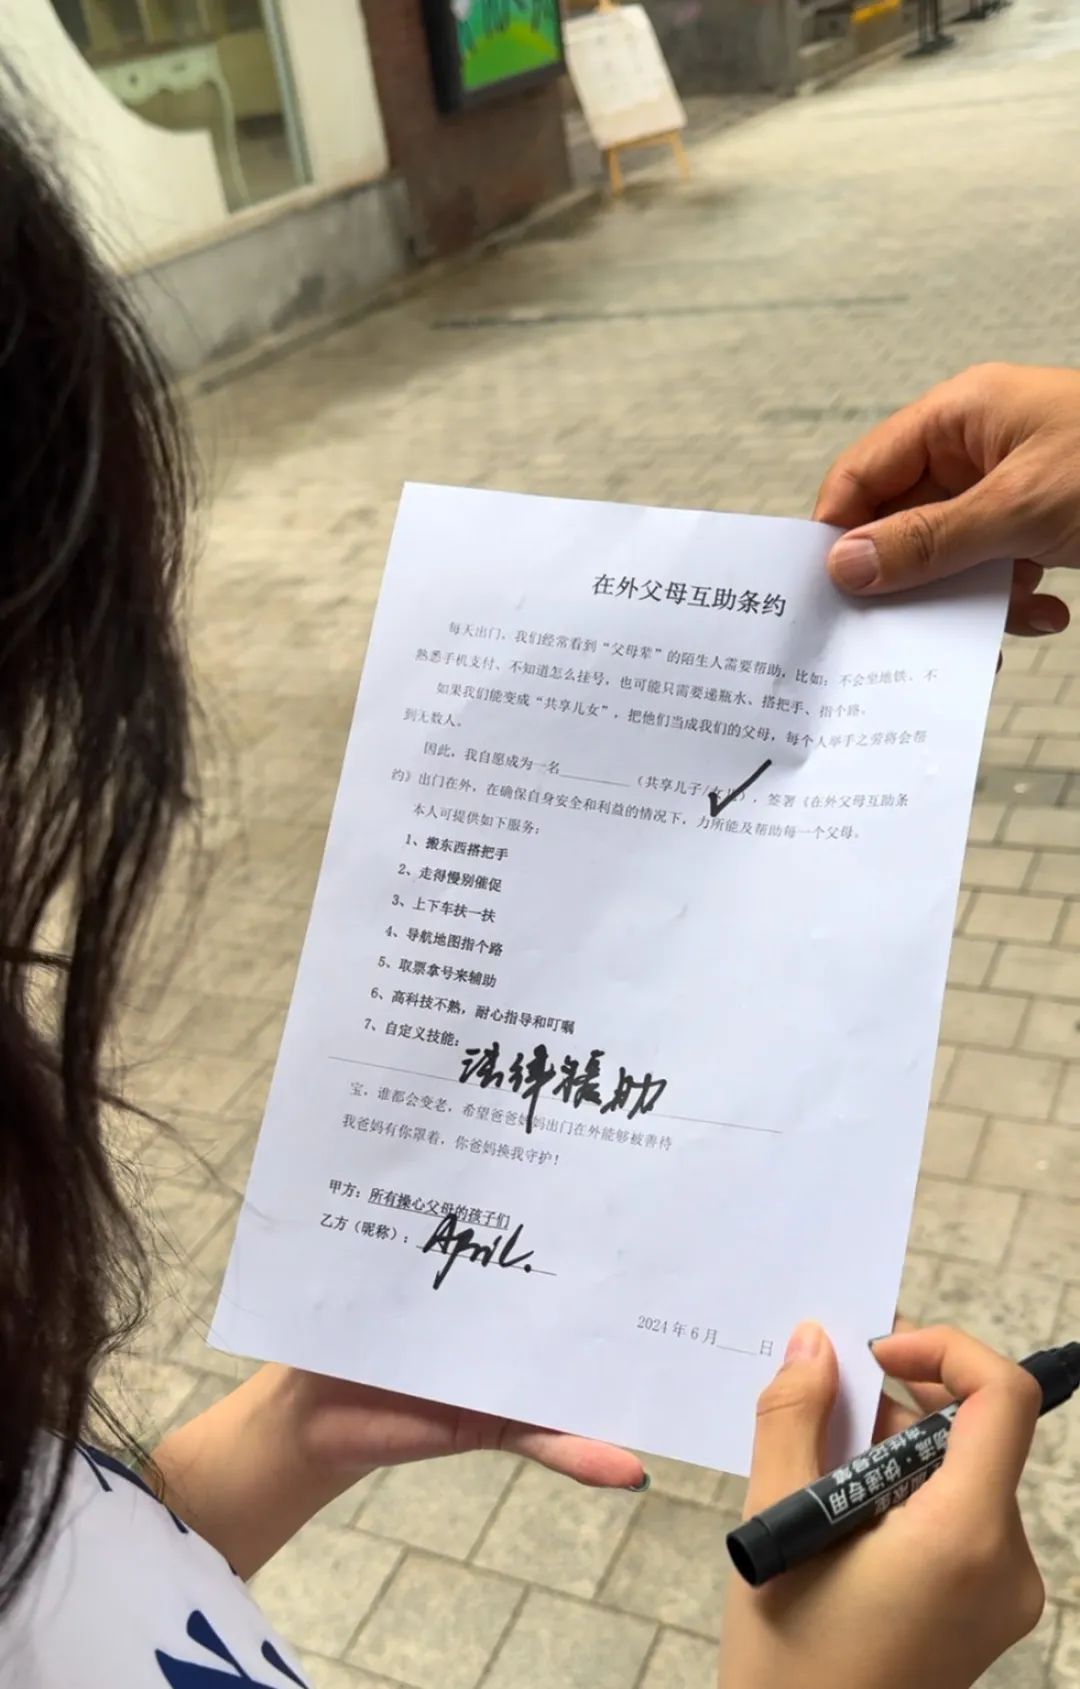 在外父母互助条约
每天出门，我们经常看到“父母辈”的陌生人需要帮助，比如：不会坐地铁、不
熟悉手机支付、不知道怎么挂号，也可能只需要递瓶水、搭把手、指个路。
如果我们能变成“共享儿女”，把他们当成我们的父母，每个人举手之劳将会帮
到无数人。
因此，我自愿成为一名________（共享儿子/女儿），签署《在外父母互助条
约》出门在外，在确保自身安全和利益的情况下，力所能及帮助每一个父母。
本人可提供如下服务：
1、搬东西搭把手
2、走得慢别催促
3、上下车扶一扶
4、导航地图指个路
5、取票拿号来辅助
6、高科技不熟，耐心指导和叮嘱
7、自定义技能：
法律援助
宝，谁都会变老，希望爸爸妈妈出门在外能够被善待
我爸妈有你罩着，你爸妈换我守护！
甲方：所有操心父母的孩子们
乙方（昵称）：April.
2024年6月____日
物流·快递专用